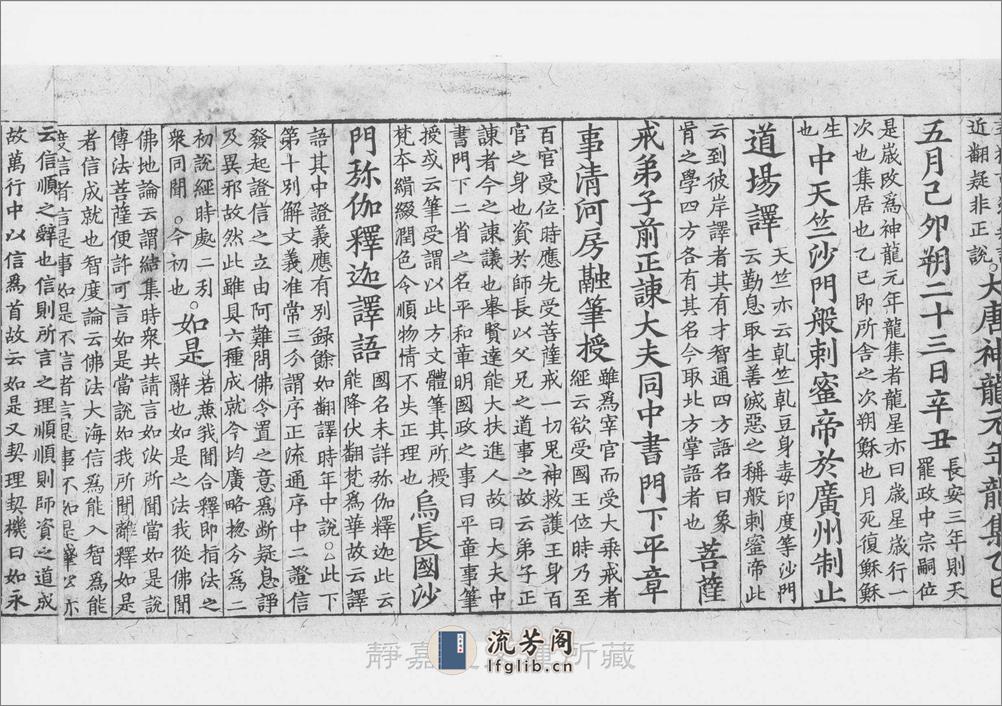 近翻疑非正說。大唐神龍元年龍集乙巳
五月己夘朔二十三日辛丑
長安三年則天
罷政中宗嗣位
是歲攺爲神龍元年龍集者龍星亦曰歲星歲行一
次也集居也乙巳即所舍之次朔穌也月死復穌穌
生
也
中天竺沙門般剌蜜帝於廣州制止
道場譯
天竺亦云乹竺乹豆身毒印度等沙門
云勤息取生善滅惡之稱般剌蜜帝此
云到彼岸譯者其有才智通四方語名曰象
胥之學四方各有其名今取北方掌語者也
菩薩
戒弟子前正諫大夫同中書門下平章
事清河房融筆授
雖爲宰官而受大乗戒者
經云欲受國王位時乃至
百官受位時應先受菩薩戒一切鬼神救護王身百
官之身也資於師長以父兄之道事之故云弟子正
諫者今之諫議也舉賢達能大扶進人故曰大夫中
書門下二省之名平和章明國政之事曰平章事筆
授或云筆受謂以此方文體筆其所授
梵夲綃綴潤色令順物情不失正理也
烏長國沙
門弥伽釋迦譯語
國名未詳弥伽釋迦此云
能降伏翻梵爲華故云譯
語其中證義應有別録餘如翻譯時年中說。△此下
第十別解文義准常三分謂序正流通序中二證信
發起證信之立由阿難問佛令置之意爲断疑息諍
及異邪故然此雖具六種成就今均廣略揔兮爲二
初說經時處二列
衆同聞。今初也。
如是
若兼我聞合釋即指法之
辭也如是之法我從佛聞
佛地論云謂緝集時衆共請言如汝所聞當如是說
傳法菩薩便許可言如是當說如我所聞離釋如是
者信成就也智度論云佛法大海信爲能入智爲能
度信者言是事如是不信者言是事不如是肇公亦
云信順之辭也信則所言之理順順則師資之道成
故萬行中以信爲首故云如是又契理契機曰如永
靜嘉 所藏
流芳阁
lfglib.cn